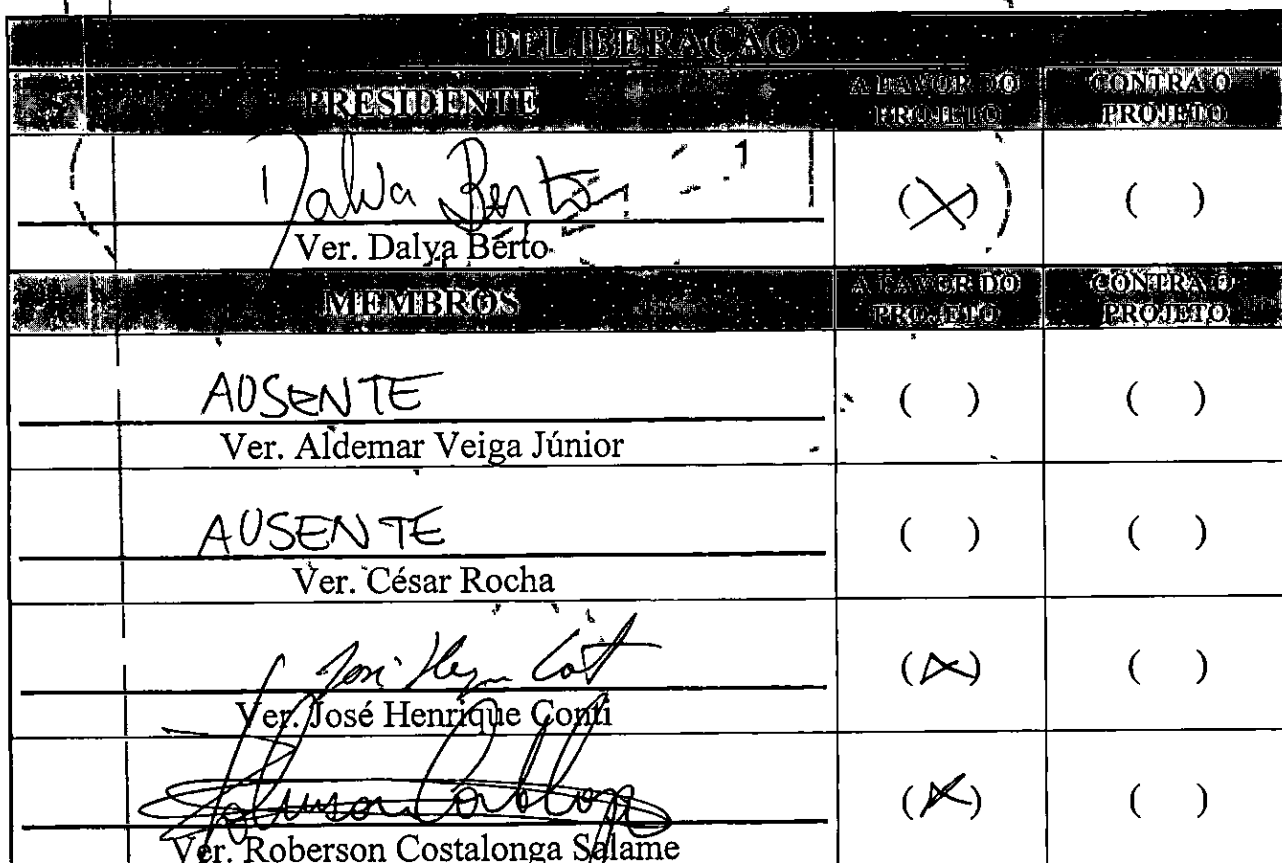 DELIBERAÇÃO
PRESIDENTE A FAVOR DO PROJETO CONTRA O PROJETO
Dalva Berto (X) ( )
Ver. Dalva Berto
MEMBROS A FAVOR DO PROJETO CONTRA O PROJETO
AUSENTE ( ) ( )
Ver. Aldemar Veiga Júnior
AUSENTE ( ) ( )
Ver. César Rocha
José Henrique Conti (X) ( )
Ver. José Henrique Conti
(X) ( )
Ver. Roberson Costalonga Salame